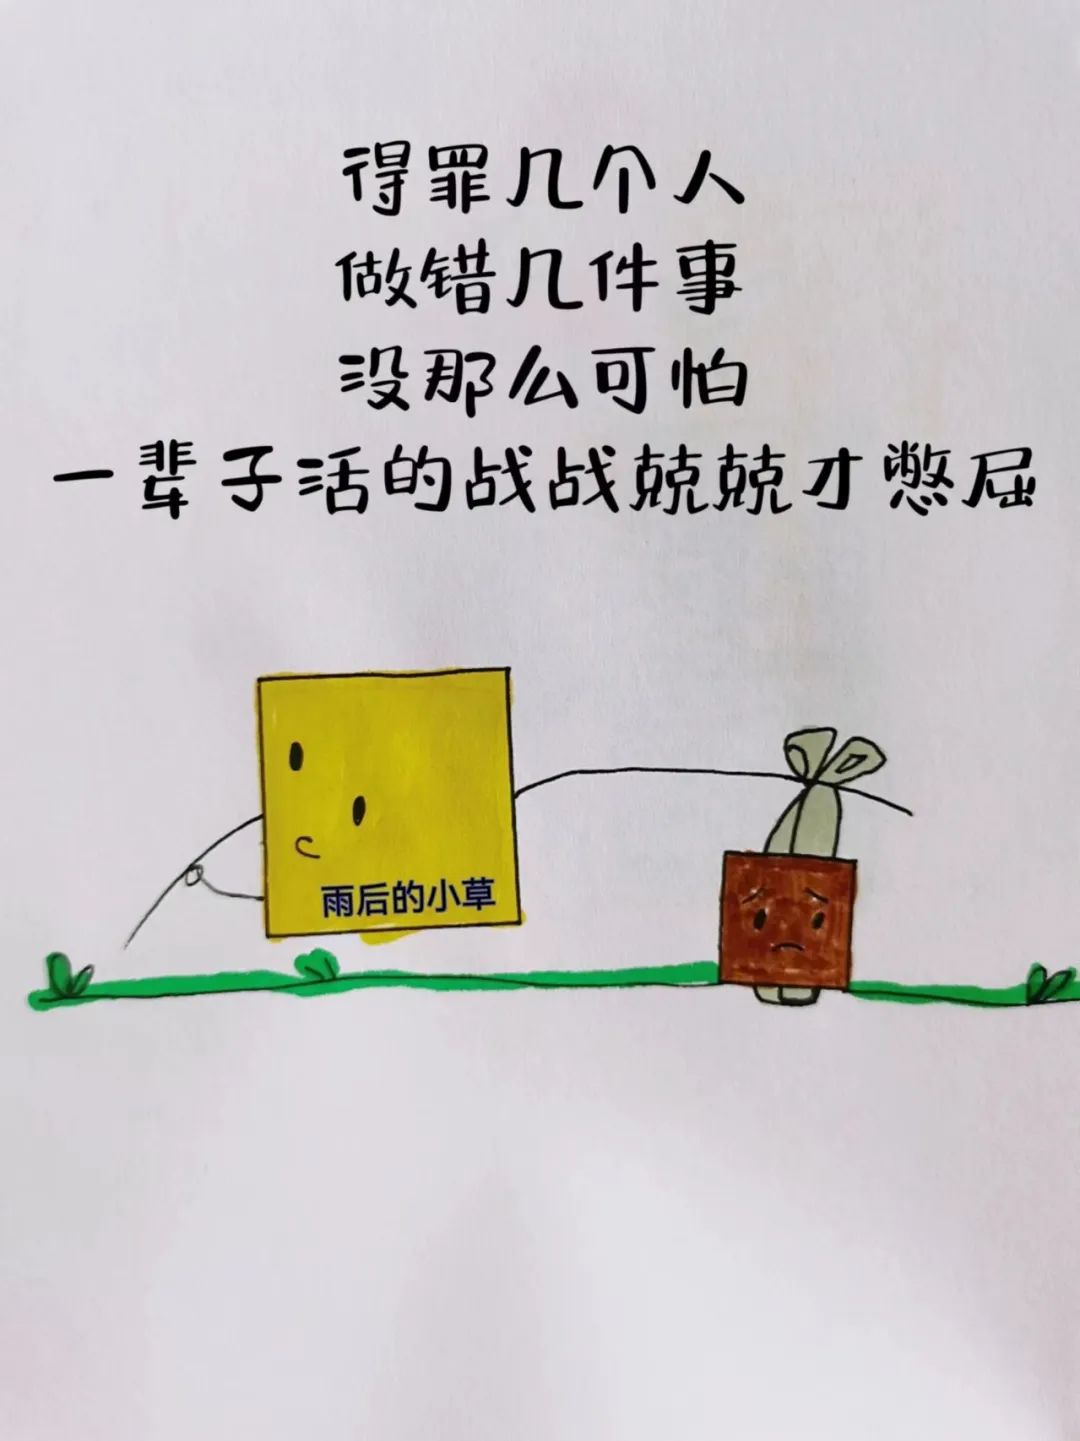 得罪几个人
做错几件事
没那么可怕
一辈子活的战战兢兢才憋屈
雨后的小草